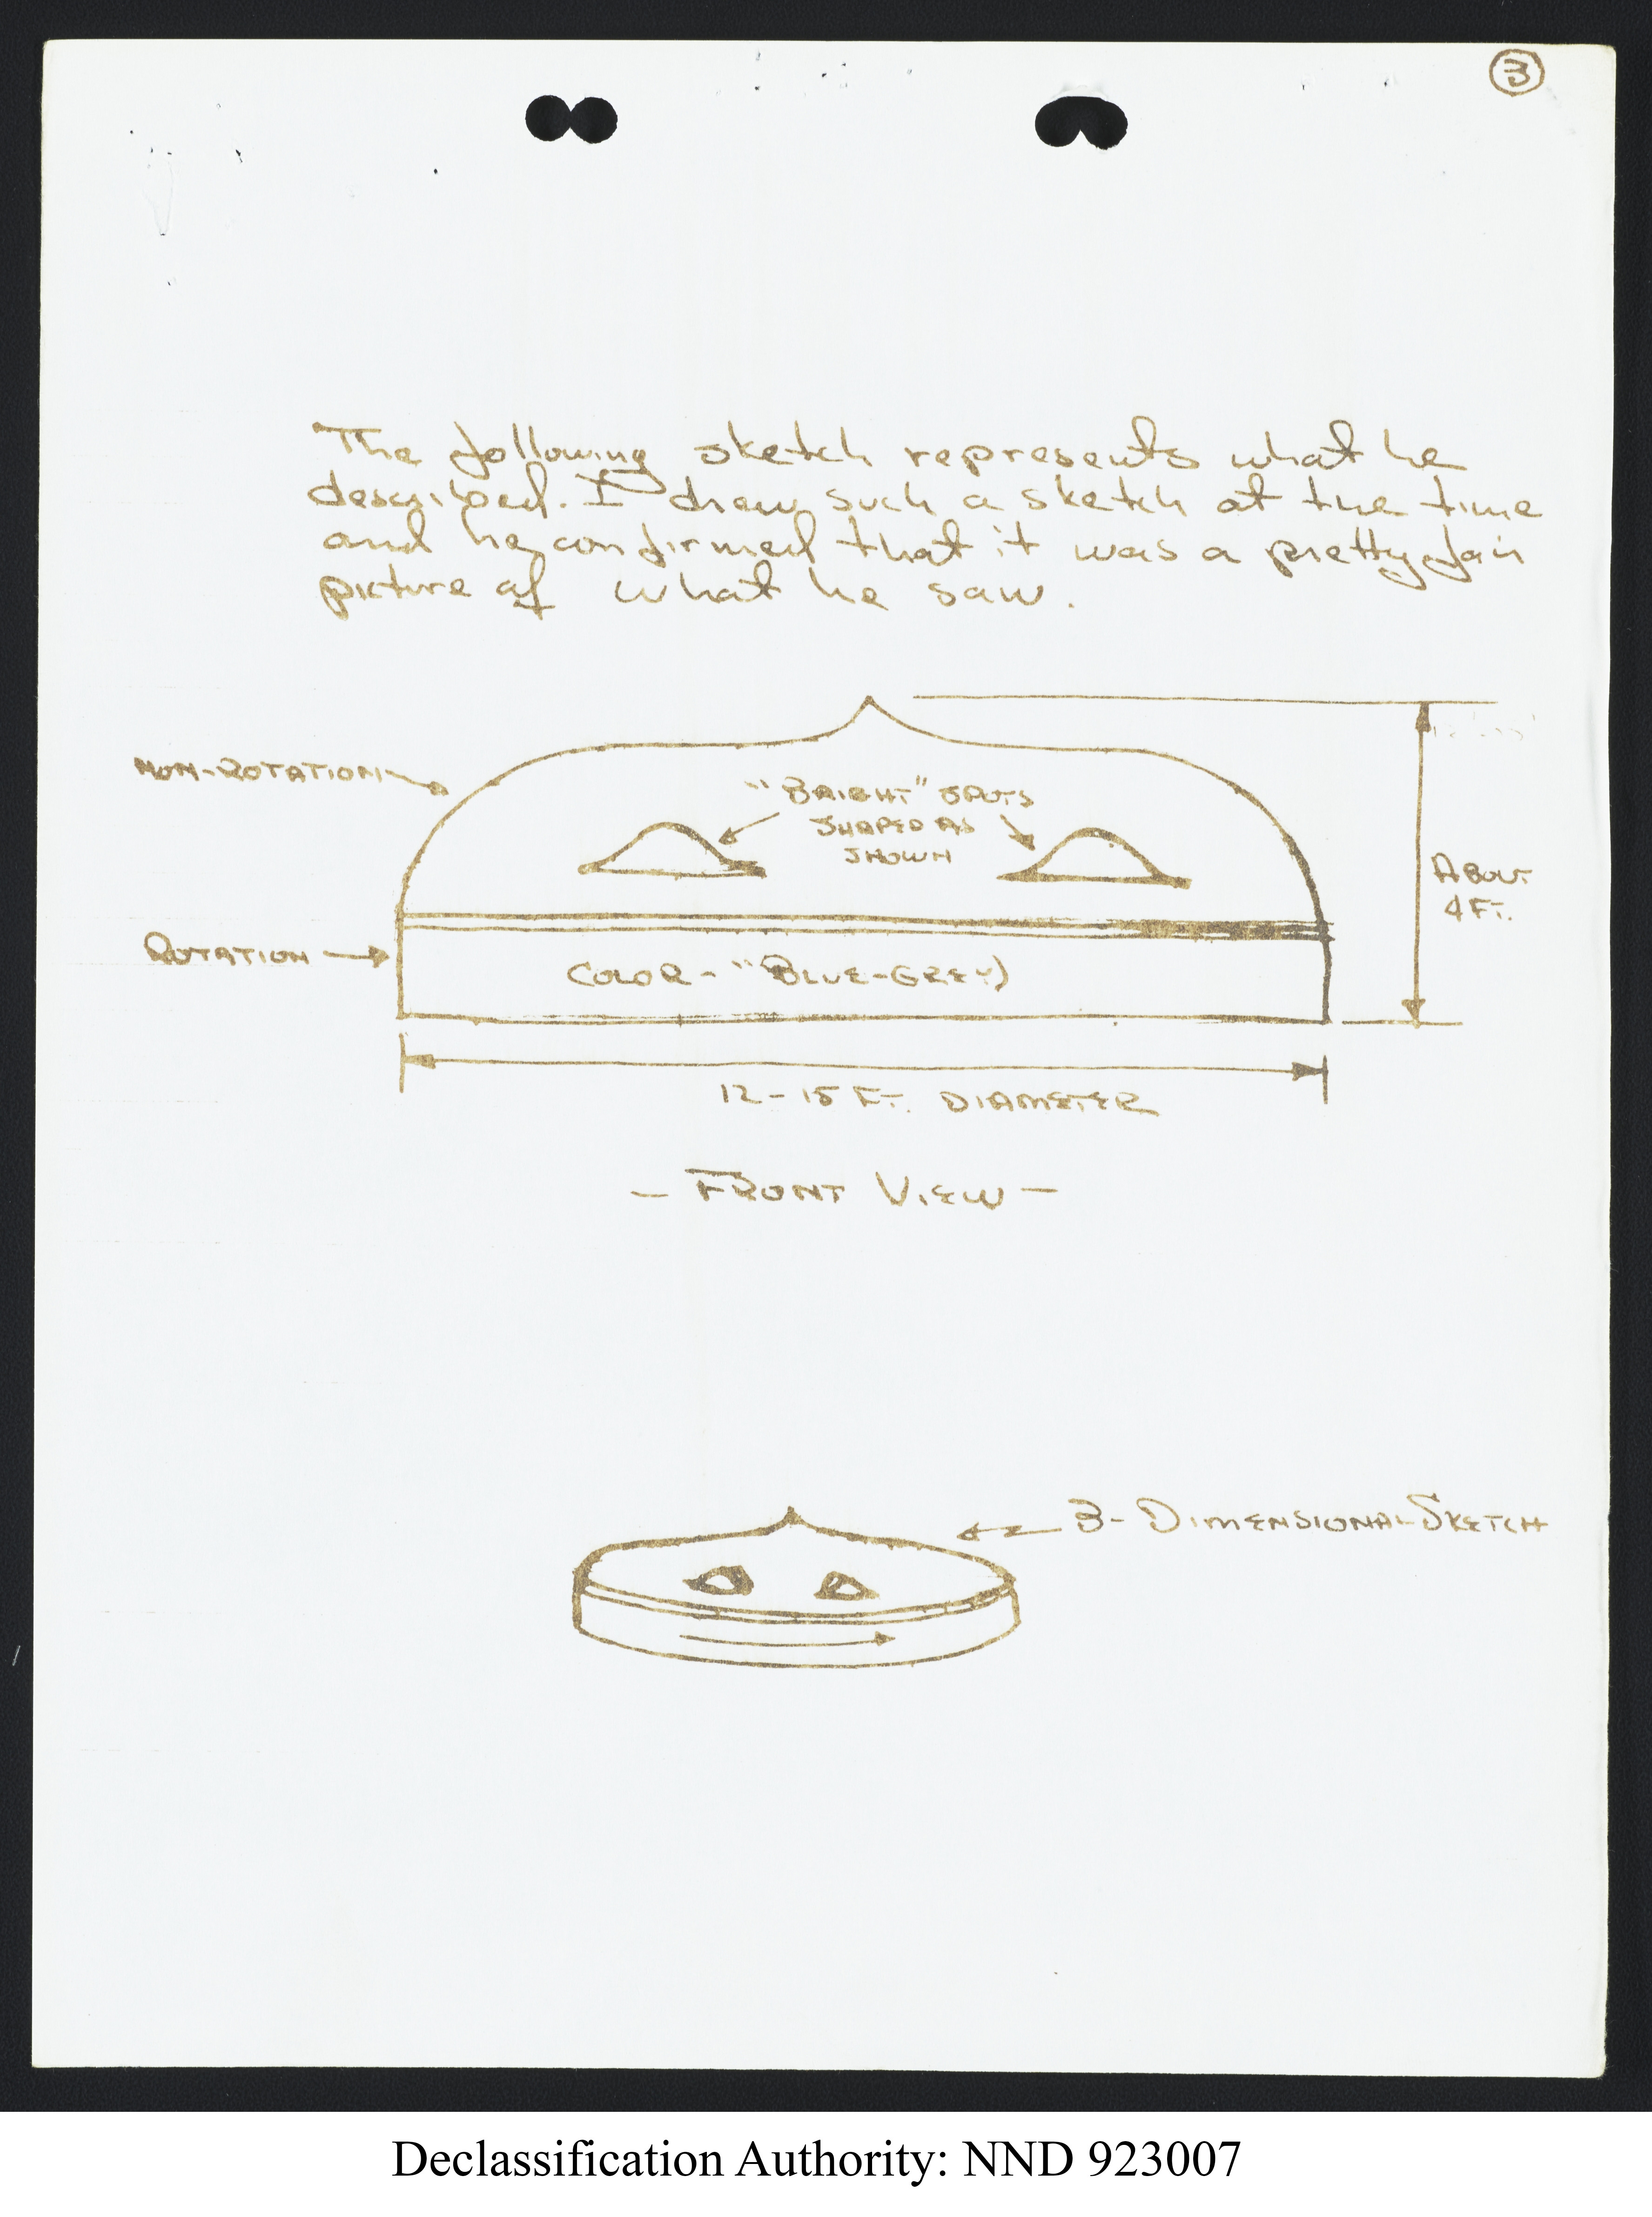 3
The following sketch represents what he
described. I drew such a sketch at the time
and he confirmed that it was a pretty fair
picture of what he saw.
NON-ROTATION
"BRIGHT" SPOTS
SHAPED AS
SHOWN
ABOUT
4 FT.
ROTATION
COLOR - "BLUE-GREY)
12-15 FT. DIAMETER
- FRONT VIEW -
3-DIMENSIONAL SKETCH
Declassification Authority: NND 923007